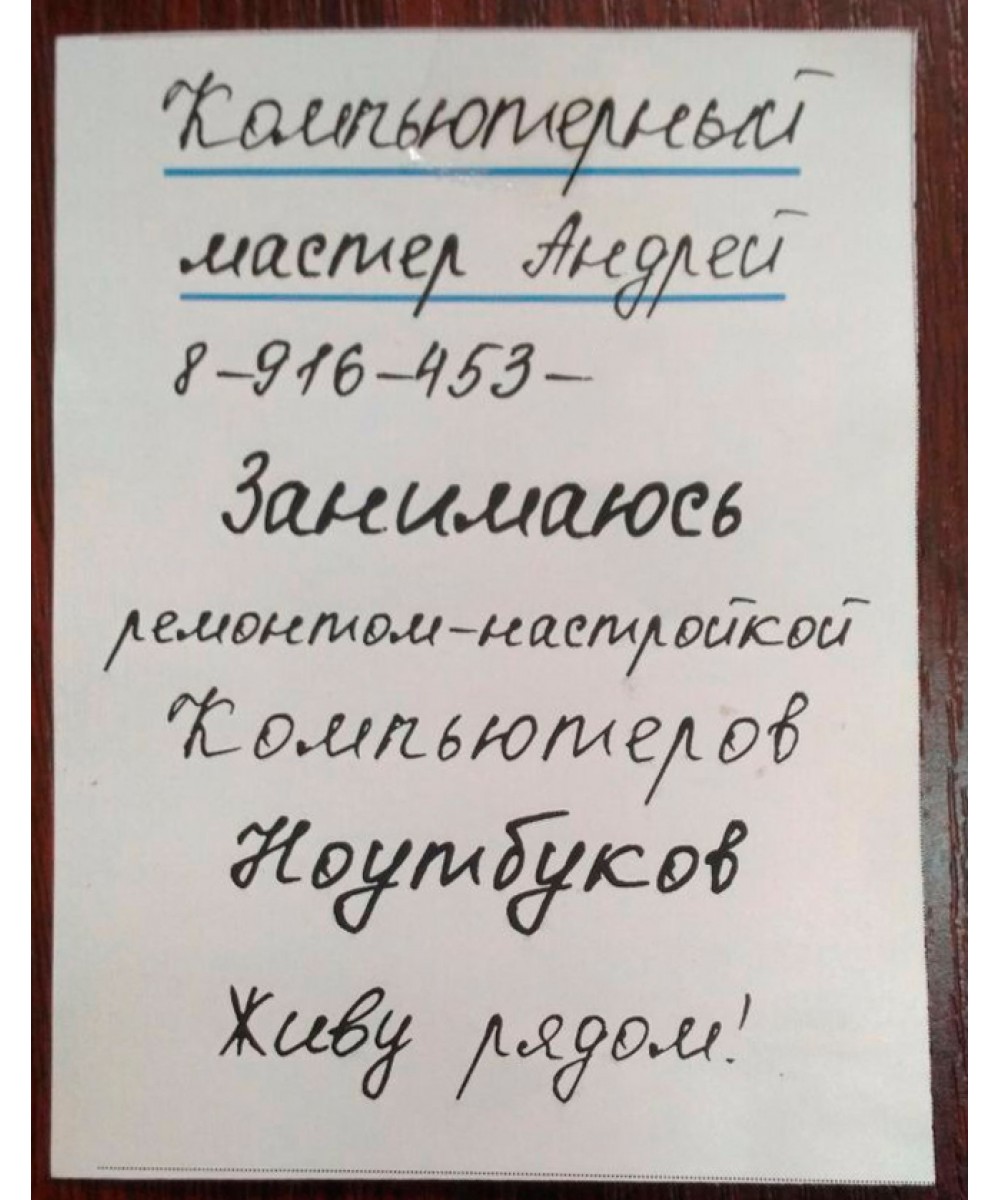 Компьютерный
мастер Андрей
8-916-453-
Занимаюсь
ремонтом-настройкой
Компьютеров
Ноутбуков
Живу рядом!